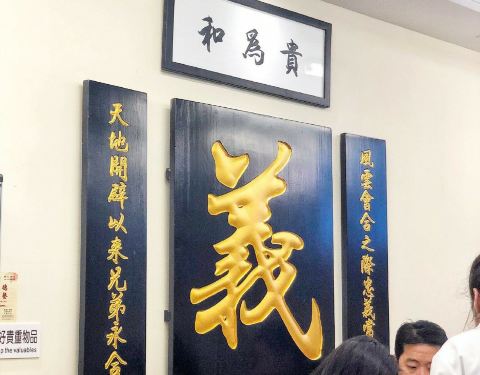 和爲貴
風雲會合之際忠義當
義
天地開辟以來兄弟永合
好貴重物品
p the valuables